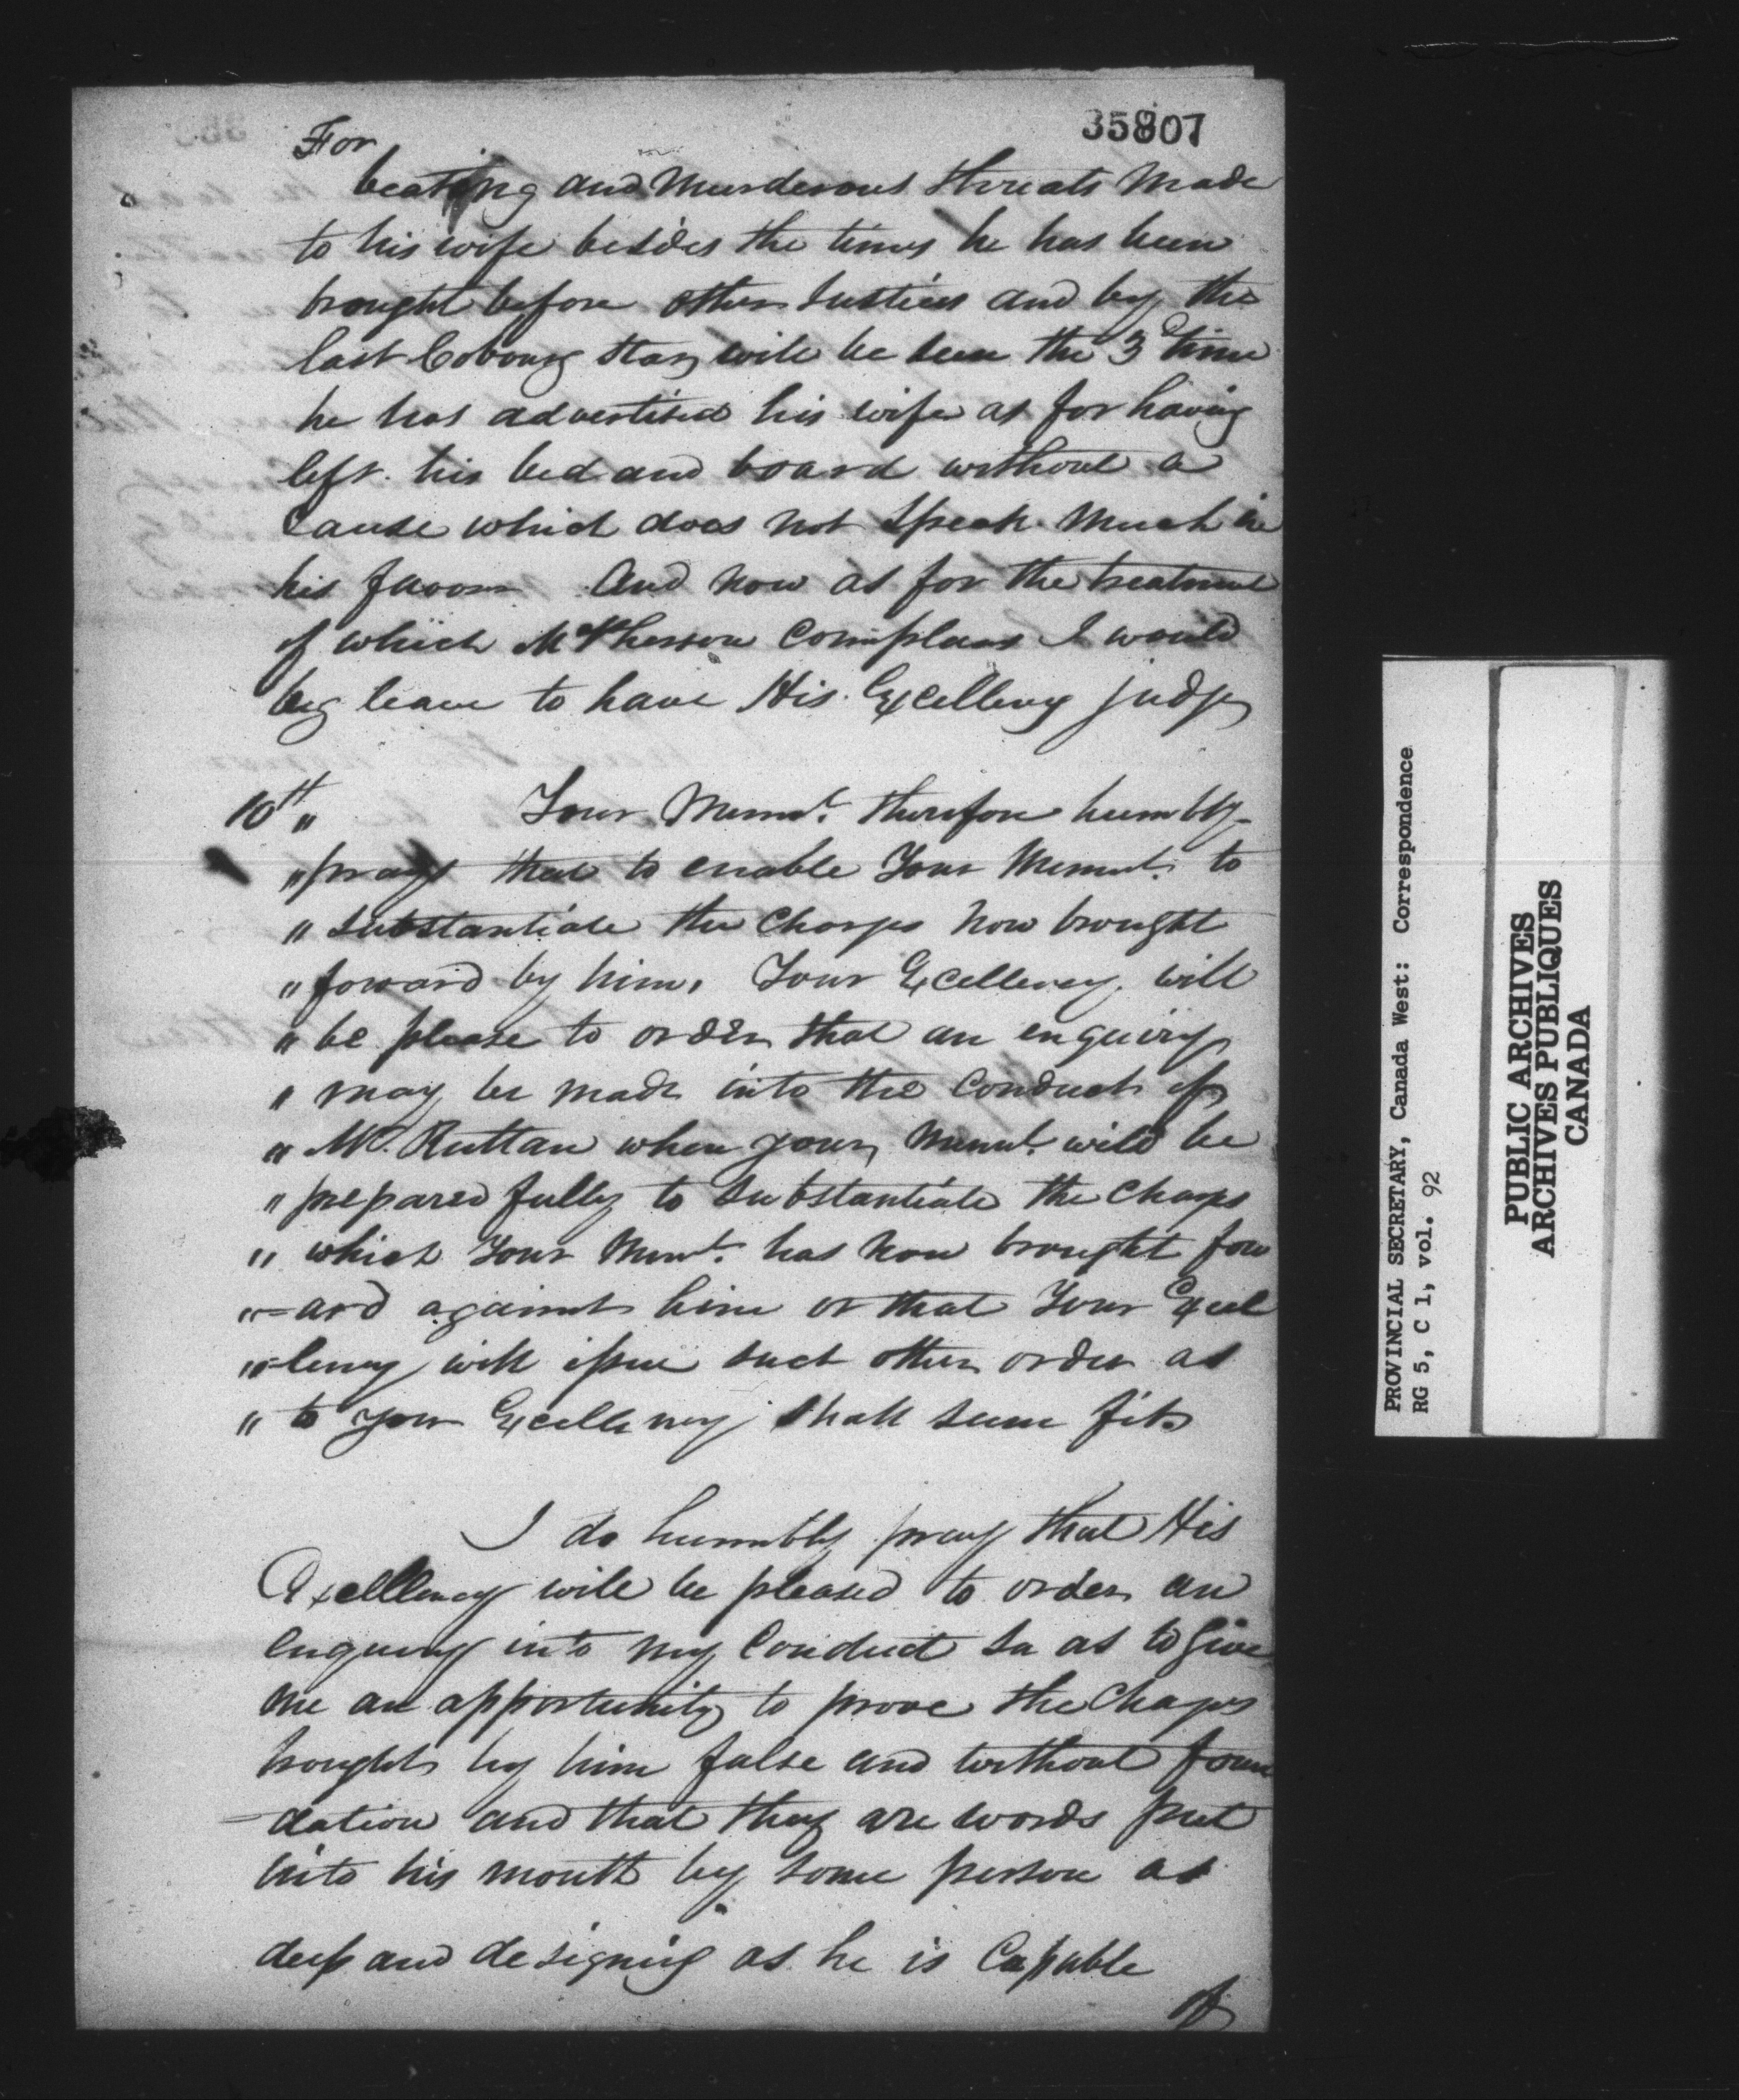 35807
For
beating and Murderous threats Made
to his wife besides the times he has been
brought before other Justices and by the
last Cobourg Star will be seen the 3d time
he has advertised his wife as for having
left his bed and board without a
Cause which does not Speak Much in
his favour And now as for the treatment
of which McPherson Complans I would
beg leave to have His Excellency judge
10th " Your Memt. therefore humbly
" prays that to enable Your Memt. to
" Substantiate the Charges Now brought
" forward by him, Your Excellency will
" be please to order that an enquiry
" may be made into the Conduct of
" Mr. Ruttan when your Memt. will be
" prepared fully to Substantiate the Charges
" which Your Memt. has Now brought forw
" =ard against him or that Your Excel
" =lency will issue such other order as
" to your Excellency shall seem fit
I do humbly pray that His
Excelllency will be pleased to order an
enquiry into my Conduct so as to give
me an opportunity to prove the Charges
brought by him false and without foun
=dation and that they are words put
into his mouth by some person as
deep and designing as he is Capable
of
PROVINCIAL SECRETARY, Canada West: Correspondence
RG 5, C 1, vol. 92
PUBLIC ARCHIVES
ARCHIVES PUBLIQUES
CANADA